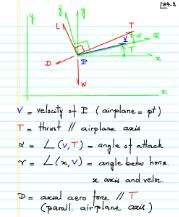 y
L
T
V
P
x
D
W
V = velocity of P (airplane = pt)
T = thrust // airplane axis
α = ∠(V,T) - angle of attack
γ = ∠(x,V) = angle betw horiz.
x axis and veloc.
D = axial aero force // T
(parall. airplane axis)